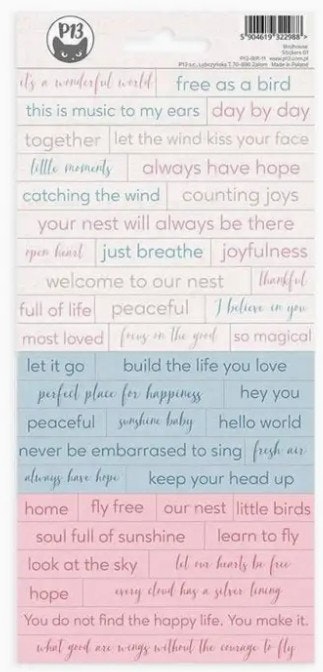 P13
5"904619"322988">
Birdhouse
Stickers 01
www.p13.com.pl
Made in Poland
it's a wonderful world free as a bird
this is music to my ears day by day
together let the wind kiss your face
little moments always have hope
catching the wind counting joys
your nest will always be there
open heart just breathe joyfulness
welcome to our nest thankful
full of life peaceful I believe in you
most loved focus on the good so magical
let it go build the life you love
perfect place for happiness hey you
peaceful sunshine baby hello world
never be embarrased to sing fresh air
always have hope keep your head up
home fly free our nest little birds
soul full of sunshine learn to fly
look at the sky let our hearts be free
hope every cloud has a silver lining
You do not find the happy life. You make it.
what good are wings without the courage to fly